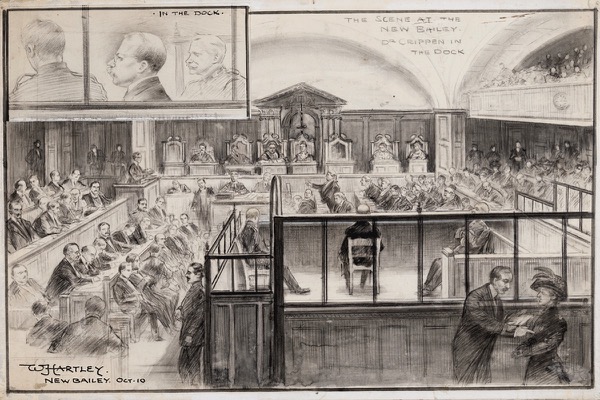 · IN THE DOCK ·
THE SCENE AT THE
NEW BAILEY.
DR CRIPPEN IN
THE DOCK
W. HARTLEY.
NEW BAILEY. OCT-10